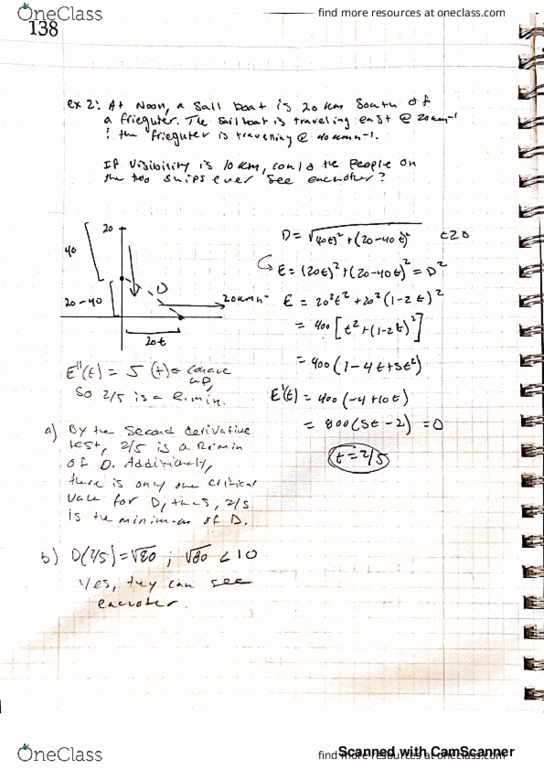 OneClass
find more resources at oneclass.com
138
ex 2: At Noon, a Sail boat is 20 km South of
a frieguter. The Sailboat is traveling east @ 20kmh⁻¹
! the frieguter is travelling @ 40kmh⁻¹.
If Visibility is 10 km, could the People on
the two ships ever see eachother?
20
40
D
20-40
20kmh⁻¹
20t
D = √(20t)² + (20-40t)² t≥0
E = (20t)² + (20-40t)² = D²
E = 20²t² + 20²(1-2t)²
= 400[t² + (1-2t)²]
= 400(1-4t+5t²)
E'(t) = 400(-4+10t)
= 800(5t-2) = 0
t = 2/5
E''(t) = 5 (+) concave
up,
So 2/5 is a R.min.
a) By the Second derivative
test, 2/5 is a R.min
of D. Additionally,
there is only one critical
value for D, thus, 2/5
is the minimum of D.
b) D(2/5) = √80 ; √80 < 10
Yes, they can see
eachoter.
Scanned with CamScanner
OneClass
find more resources at oneclass.com